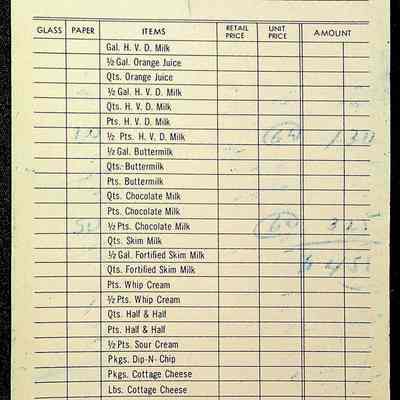 GLASS PAPER ITEMS RETAIL PRICE UNIT PRICE AMOUNT
Gal. H. V. D. Milk
½ Gal. Orange Juice
Qts. Orange Juice
½ Gal. H. V. D. Milk
Qts. H. V. D. Milk
Pts. H. V. D. Milk
½ Pts. H. V. D. Milk
½ Gal. Buttermilk
Qts. Buttermilk
Pts. Buttermilk
Qts. Chocolate Milk
Pts. Chocolate Milk
½ Pts. Chocolate Milk 3 25
Qts. Skim Milk
½ Gal. Fortified Skim Milk
Qts. Fortified Skim Milk
Pts. Whip Cream
½ Pts. Whip Cream
Qts. Half & Half
Pts. Half & Half
½ Pts. Sour Cream
Pkgs. Dip-N- Chip
Pkgs. Cottage Cheese
Lbs. Cottage Cheese